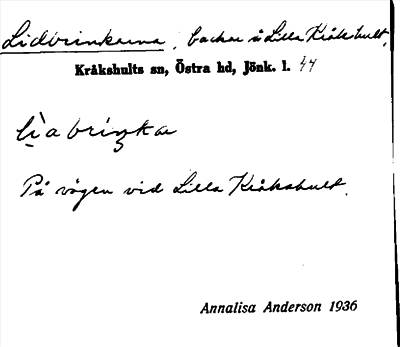 Lidbrinkarna, backar å Lilla Kråkshult,
Kråkshults sn, Östra hd, Jönk. l. 44
På vägen vid Lilla Kråkshult.
Annalisa Anderson 1936